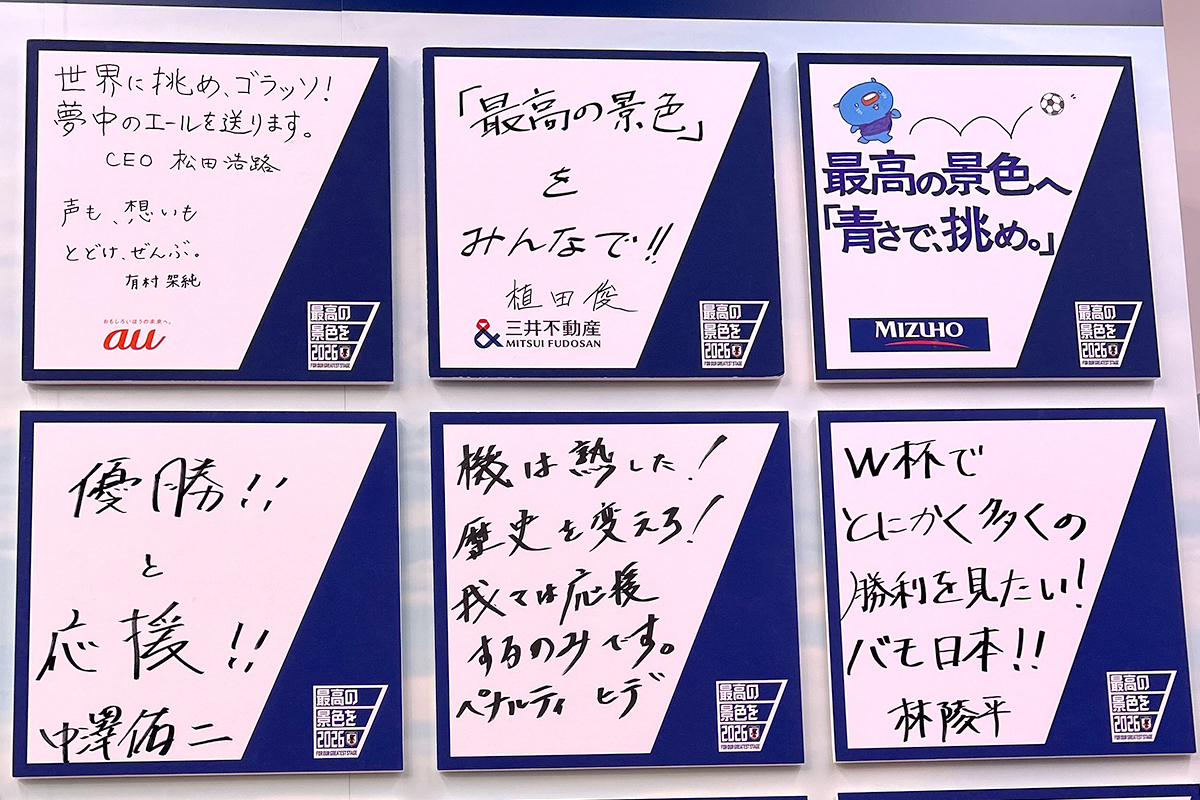 世界に挑め、ゴラッソ!
夢中のエールを送ります。
CEO 松田浩路
声も、想いも
とどけ、ぜんぶ。
有村架純
おもしろいほうの未来へ。
au
最高の
景色を
2026
FOR OUR GREATEST STAGE
「最高の景色」
を
みんなで!!
植田俊
三井不動産
MITSUI FUDOSAN
最高の
景色を
2026
FOR OUR GREATEST STAGE
最高の景色へ
「青さで、挑め。」
MIZUHO
最高の
景色を
2026
FOR OUR GREATEST STAGE
優勝!!
と
応援!!
中澤佑二
最高の
景色を
2026
FOR OUR GREATEST STAGE
機は熟した!
歴史を変えろ!
我々は応援
するのみです。
ペナルティ ヒデ
最高の
景色を
2026
FOR OUR GREATEST STAGE
W杯で
とにかく多くの
勝利を見たい!
バモ日本!!
林陵平
最高の
景色を
2026
FOR OUR GREATEST STAGE